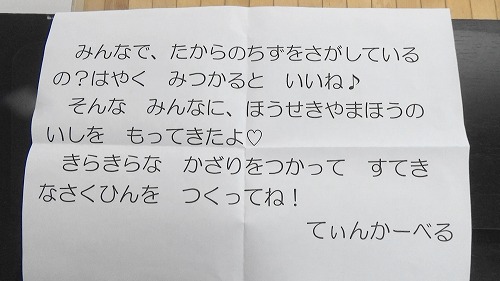 みんなで、たからのちずをさがしている
の？はやく　みつかると　いいね♪
そんな　みんなに、ほうせきやまほうの
いしを　もってきたよ♡
きらきらな　かざりをつかって　すてき
なさくひんを　つくってね！
てぃんかーべる